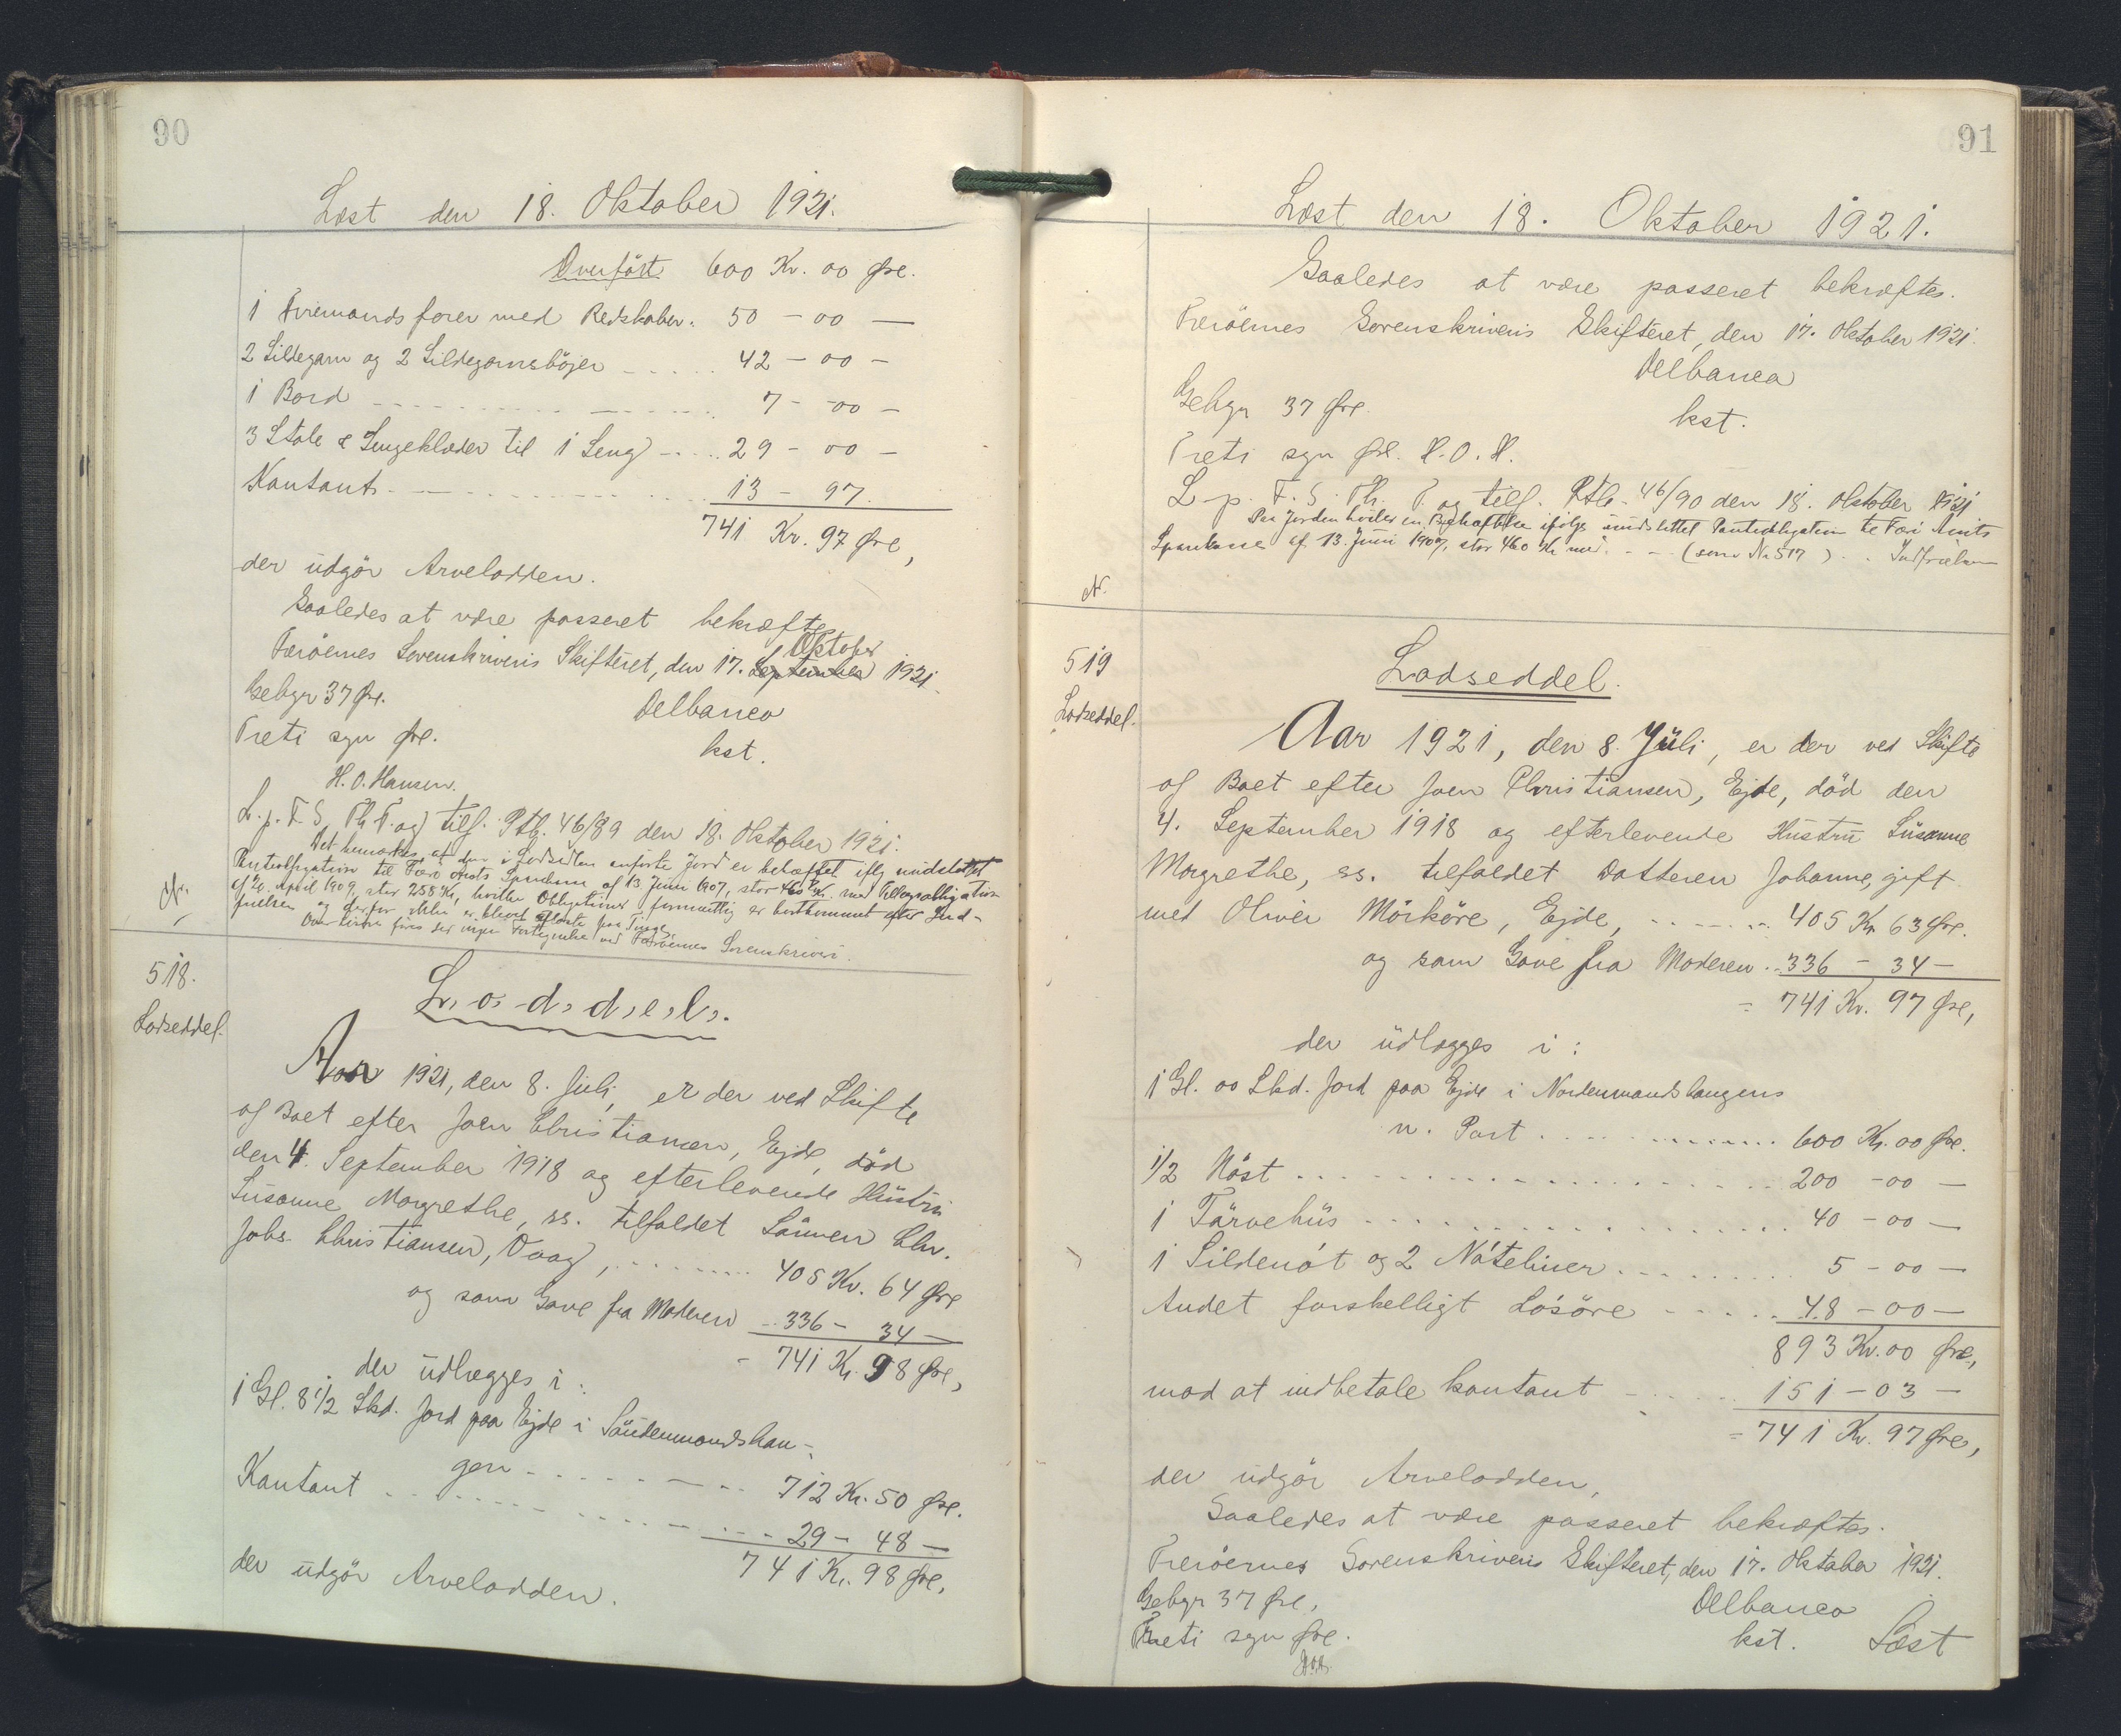 90
Læst den 18. Oktober 1921.
Overført 600 Kr. 00 Øre.
1 Firemandsfarer med Redskaber. 50 - 00 -
2 Sildegarn og 2 Sildegarnsböjer - - - - - 42 - 00 -
1 Bord - - - - - - - - 7 - 00 -
3 Stole & Sengeklæder til 1 Seng - - - 29 - 00 -
Kontant - - - - - - - - 13 - 97.
741 Kr. 97 Øre,
der udgör Arvelodden.
Saaledes at være passeret bekræftes
Oktober
Færöernes Sorenskriveris Skifteret, den 17. September 1921.
Gebyr 37 Øre.
Delbanco
Treti syv Øre.
kst.
H. O. Hansen.
L. p. F. S. Th. T. og tilf. Ptb. 46/89 den 18. Oktober 1921.
Det bemærkes, at den i Lodsedlen anförte Jord er behæftet iflg. udslettet
Pantobligation til Færö Amts Sparekasse af 13. Juni 1907, stor 460 Kr. med Tillægsobligation
af April 1909, stor 255 Kr., hvilke Obligationer formentlig er bortkommet efter Ind-
frielsen og derfor ikke er blevet aflæste paa Tinge.
Over föres der ingen Fortegnelse ved Færöernes Sorenskriveri.
Nr.
518.
Lodseddel.
L, o, d, d, e, l,.
Aar 1921, den 8. Juli, er der ved Skifte
af Boet efter Joen Christiansen, Ejde, död
den 4. September 1918 og efterlevende Hustru
Susanne Margrethe, ss. tilfaldet Sönnen Chr.
Johs. Christiansen, Vaag, - - - - - 405 Kr. 64 Øre
og som Gave fra Moderen - - 336 - 34 -
- 741 Kr. 98 Øre,
der udlægges i:
1 Gl. 8 1/2 Skd. Jord paa Ejde i Söndenmandshau-
gen - - - - - - - 712 Kr. 50 Øre.
Kontant - - - - - - - - 29 - 48 -
741 Kr. 98 Øre,
der udgör Arvelodden.
91
Læst den 18. Oktober 1921.
Saaledes at være passeret bekræftes.
Færöernes Sorenskriveris Skifteret, den 17. Oktober 1921.
Delbanco
Gebyr 37 Øre.
kst.
Treti syv Øre. H. O. H.
L. p. F. S. Th. T. og tilf. Ptb. 46/90 den 18. Oktober 1921
Paa Jorden hviler en Behæftelse ifölge udslettet Pantobligation til Færö Amts
Sparekasse af 13. Juni 1907, stor 460 Kr. med. - - - (som Nr 517) . . Indfrielsen
Nr.
519
Lodseddel.
Lodseddel.
Aar 1921, den 8. Juli, er der ved Skifte
af Boet efter Joen Christiansen, Ejde, död den
4. September 1918 og efterlevende Hustru Susanne
Margrethe, ss. tilfaldet Datteren Johanne, gift
med Oliver Mörköre, Ejde, - - - - - 405 Kr. 63 Øre.
og som Gave fra Moderen - 336 - 34 -
= 741 Kr. 97 Øre,
der udlægges i:
1 Gl. 00 Skd. Jord paa Ejde i Nordenmandshaugens
n. Part . . . . . . . . 600 Kr. 00 Øre.
1/2 Nöst . . . . . . . . . . . . 200 - 00 -
1 Törvehus . . . . . . . . . . . . 40 - 00 -
1 Sildenót og 2 Nóteliner . . . . . . 5 - 00 -
Andet forskelligt Lösöre - - - - - 48 - 00 -
893 Kr. 00 Øre,
mod at indbetale kontant - - - - 151 - 03 -
= 741 Kr. 97 Øre,
der udgör Arvelodden,
Saaledes at være passeret bekræftes.
Færöernes Sorenskriveris Skifteret, den 17. Oktober 1921.
Gebyr 37 Øre,
Delbanco
Treti syv Øre.
kst.
Læst
H.O.H.